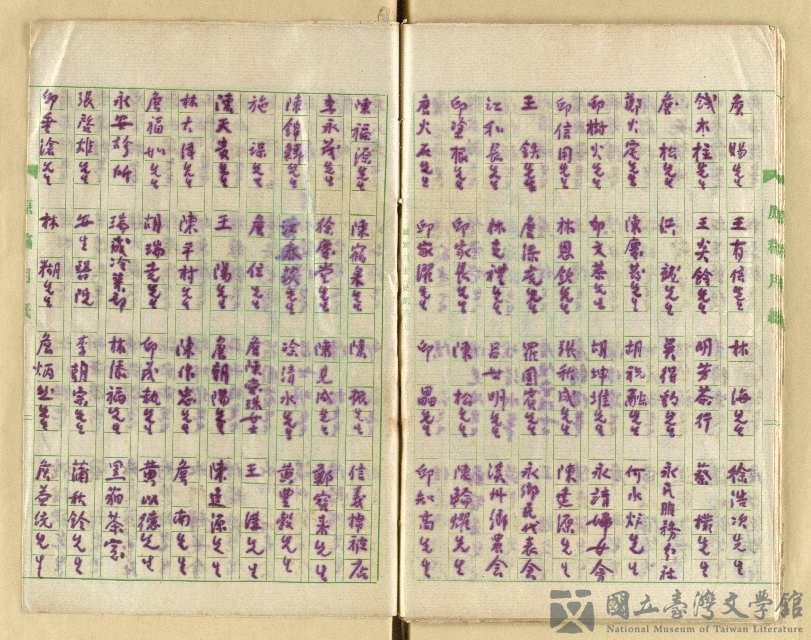 詹 賜先生 王有信先生 林 海先生 徐浩次先生
錢木柱先生 王炎鈴先生 明芳茶行 蔡 樸先生
詹 松先生 洪 龍先生 吳得利先生 永民服務分社
鄭火定先生 陳慶芳先生 胡祝融 何水炉先生
邱樹火先生 邱文恭先生 胡坤維先生 永靖婦女會
邱信用先生 林恩欽先生 張新成先生 陳重源先生
王 鉄先生 詹深亮先生 羅固容先生 永鄉民代表会
江和長先生 林克禮先生 呂世明先生 溪州鄉農會
邱塗根先生 邱家長先生 陳 松先生 陳輪燿先生
詹火石先生 邱家濯先生 邱 晶先生 邱知高先生
陳福源先生 陳宿来先生 陳 振先生 信義棉被店
王永茂先生 徐慶堂先生 陳見成先生 鄭容来先生
陳錦麟先生 先生 涂清水先生 黃豐毅先生
施 謀先生 詹 信先生 詹陳寶珠女士 王 隆先生
陳天貴先生 王 陽先生 詹朝陽先生 陳進源先生
林大傳先生 陳平村先生 陳作忠先生 詹 南先生
詹福如先生 胡瑞老先生 邱成勳先生 黃以德先生
永安診所 瑞成冷凍部 林添福先生 黑狗茶室
張啓雄先生 安生醫院 李朝宗先生 蒲秋鈴先生
邱垂滄先生 林 糊先生 詹炳然先生 詹益統先生
國立臺灣文學館
National Museum of Taiwan Literature